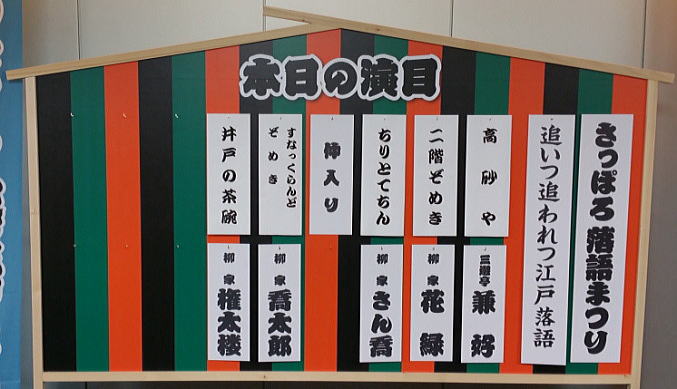 本日の演目
さっぽろ落語まつり
追いつ追われつ江戸落語
高砂や
三遊亭
兼好
二階ぞめき
柳家
花緑
ちりとてちん
柳家
さん喬
仲入り
すなっくらんど
ぞめき
柳家
喬太郎
井戸の茶碗
柳家
権太楼